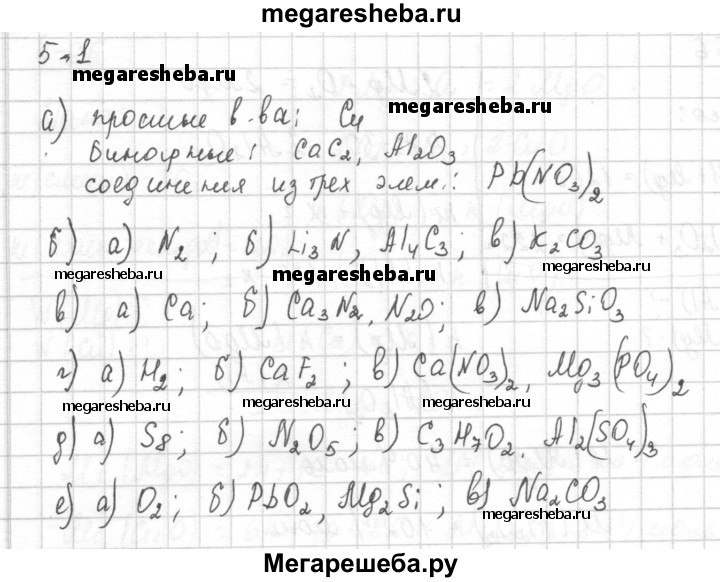 megaresheba.ru
5-1
megaresheba.ru
megaresheba.ru
а) простые в-ва: Cu
бинарные: CaC2, Al2O3
соединения из трех элем.: Pb(NO3)2
б) а) N2; б) Li3N, Al4C3; в) K2CO3
megaresheba.ru megaresheba.ru megaresheba.ru
в) а) Ca; б) Ca3N2, N2O; в) Na2SiO3
г) а) H2; б) CaF2; в) Ca(NO3)2, Mg3(PO4)2
megaresheba.ru megaresheba.ru megaresheba.ru
д) а) S8; б) N2O5; в) C3H7O2, Al2(SO4)3
е) а) O2; б) PbO2, Mg2Si; в) Na2CO3
megaresheba.ru
Мегарешеба.ру